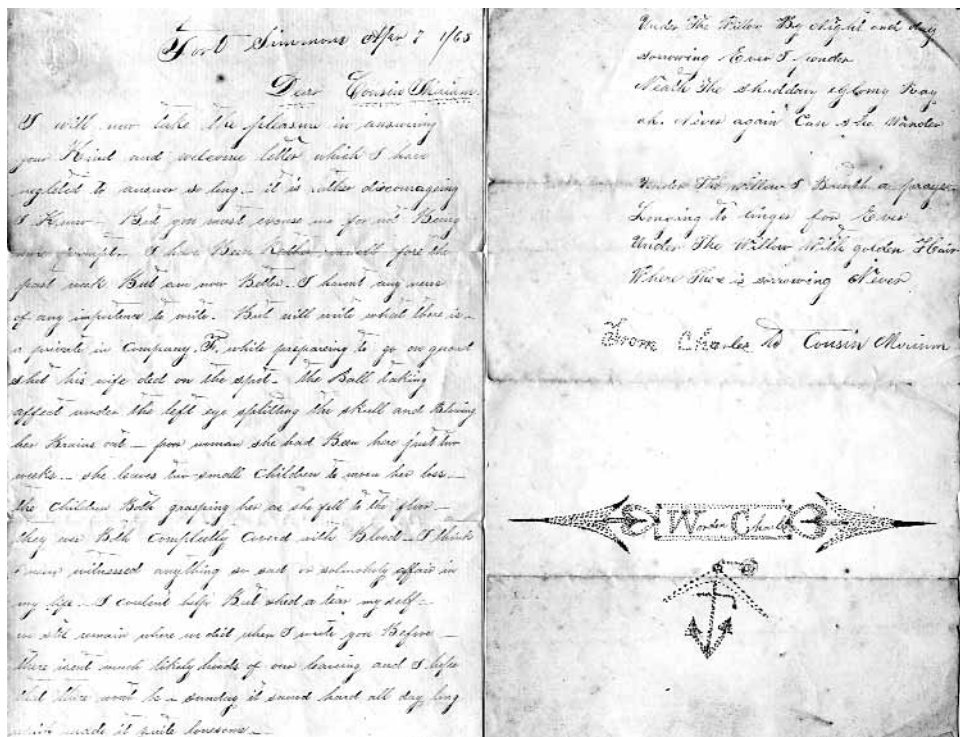 Fort Simmons Apr 7 1/65
Dear Cousin Miriam
I will now take the pleasure in answering
your Kind and welcome letter which I have
negleted to answer so long - it is rather discourageing
I Know - But you must excuse me for not Being
more prompt. I have Been Rather unwell fore the
past week But am now Better. I havent any news
of any importence to write. But will write what there is -
a private in Company, F, while prepareing to go on guard
shot his wife ded on the spot - the Ball taking
affect under the left eye splitting the skull and Blowing
her Brains out - poor woman she had Been here just two
weeks - she leaves two small Children to morn her loss -
the Children Both grasping her as she fell to the floor -
they were Both Completly Coverd with Blood - I think
I never witnessed anything so sad or solmoholy affair in
my life - I coulent help But shed a tear my self -
we still remain where we did when I wrote you Before -
there isent much likely hoods of our leaving and I hope
that there wont be - sunday it rained hard all day long
which made it quite lonesome -
Under The Willow By Night and day
sorrowing Ever I ponder
Neath The shuddow egloomy Ray
ah. Never again Can she Wander
Under The willow I Breath a prayer
Longing to linger for Ever
Under The Willow With golden Hair
Where There is sorrowing Never
From Charles to Cousin Mirium
Worden Charles